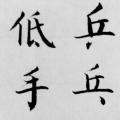 乒乓
低手